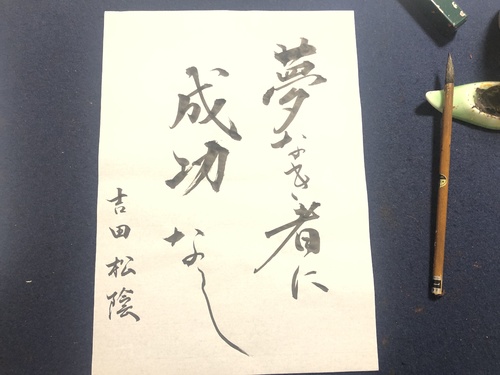 夢なき者に
成功なし
吉田松陰